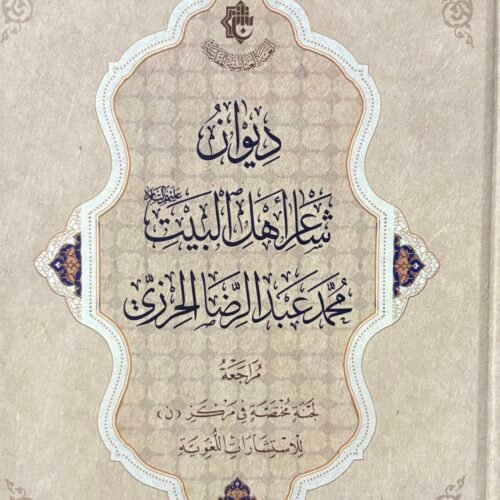 ديوانُ
شاعر أهل البيت عليهم السلام
محمّد عبد الرضا الحرزيّ
مُراجَعَةُ
لجنةٍ مختصّةٍ في مركز (ن)
للاستشاراتِ اللّغويّةِ